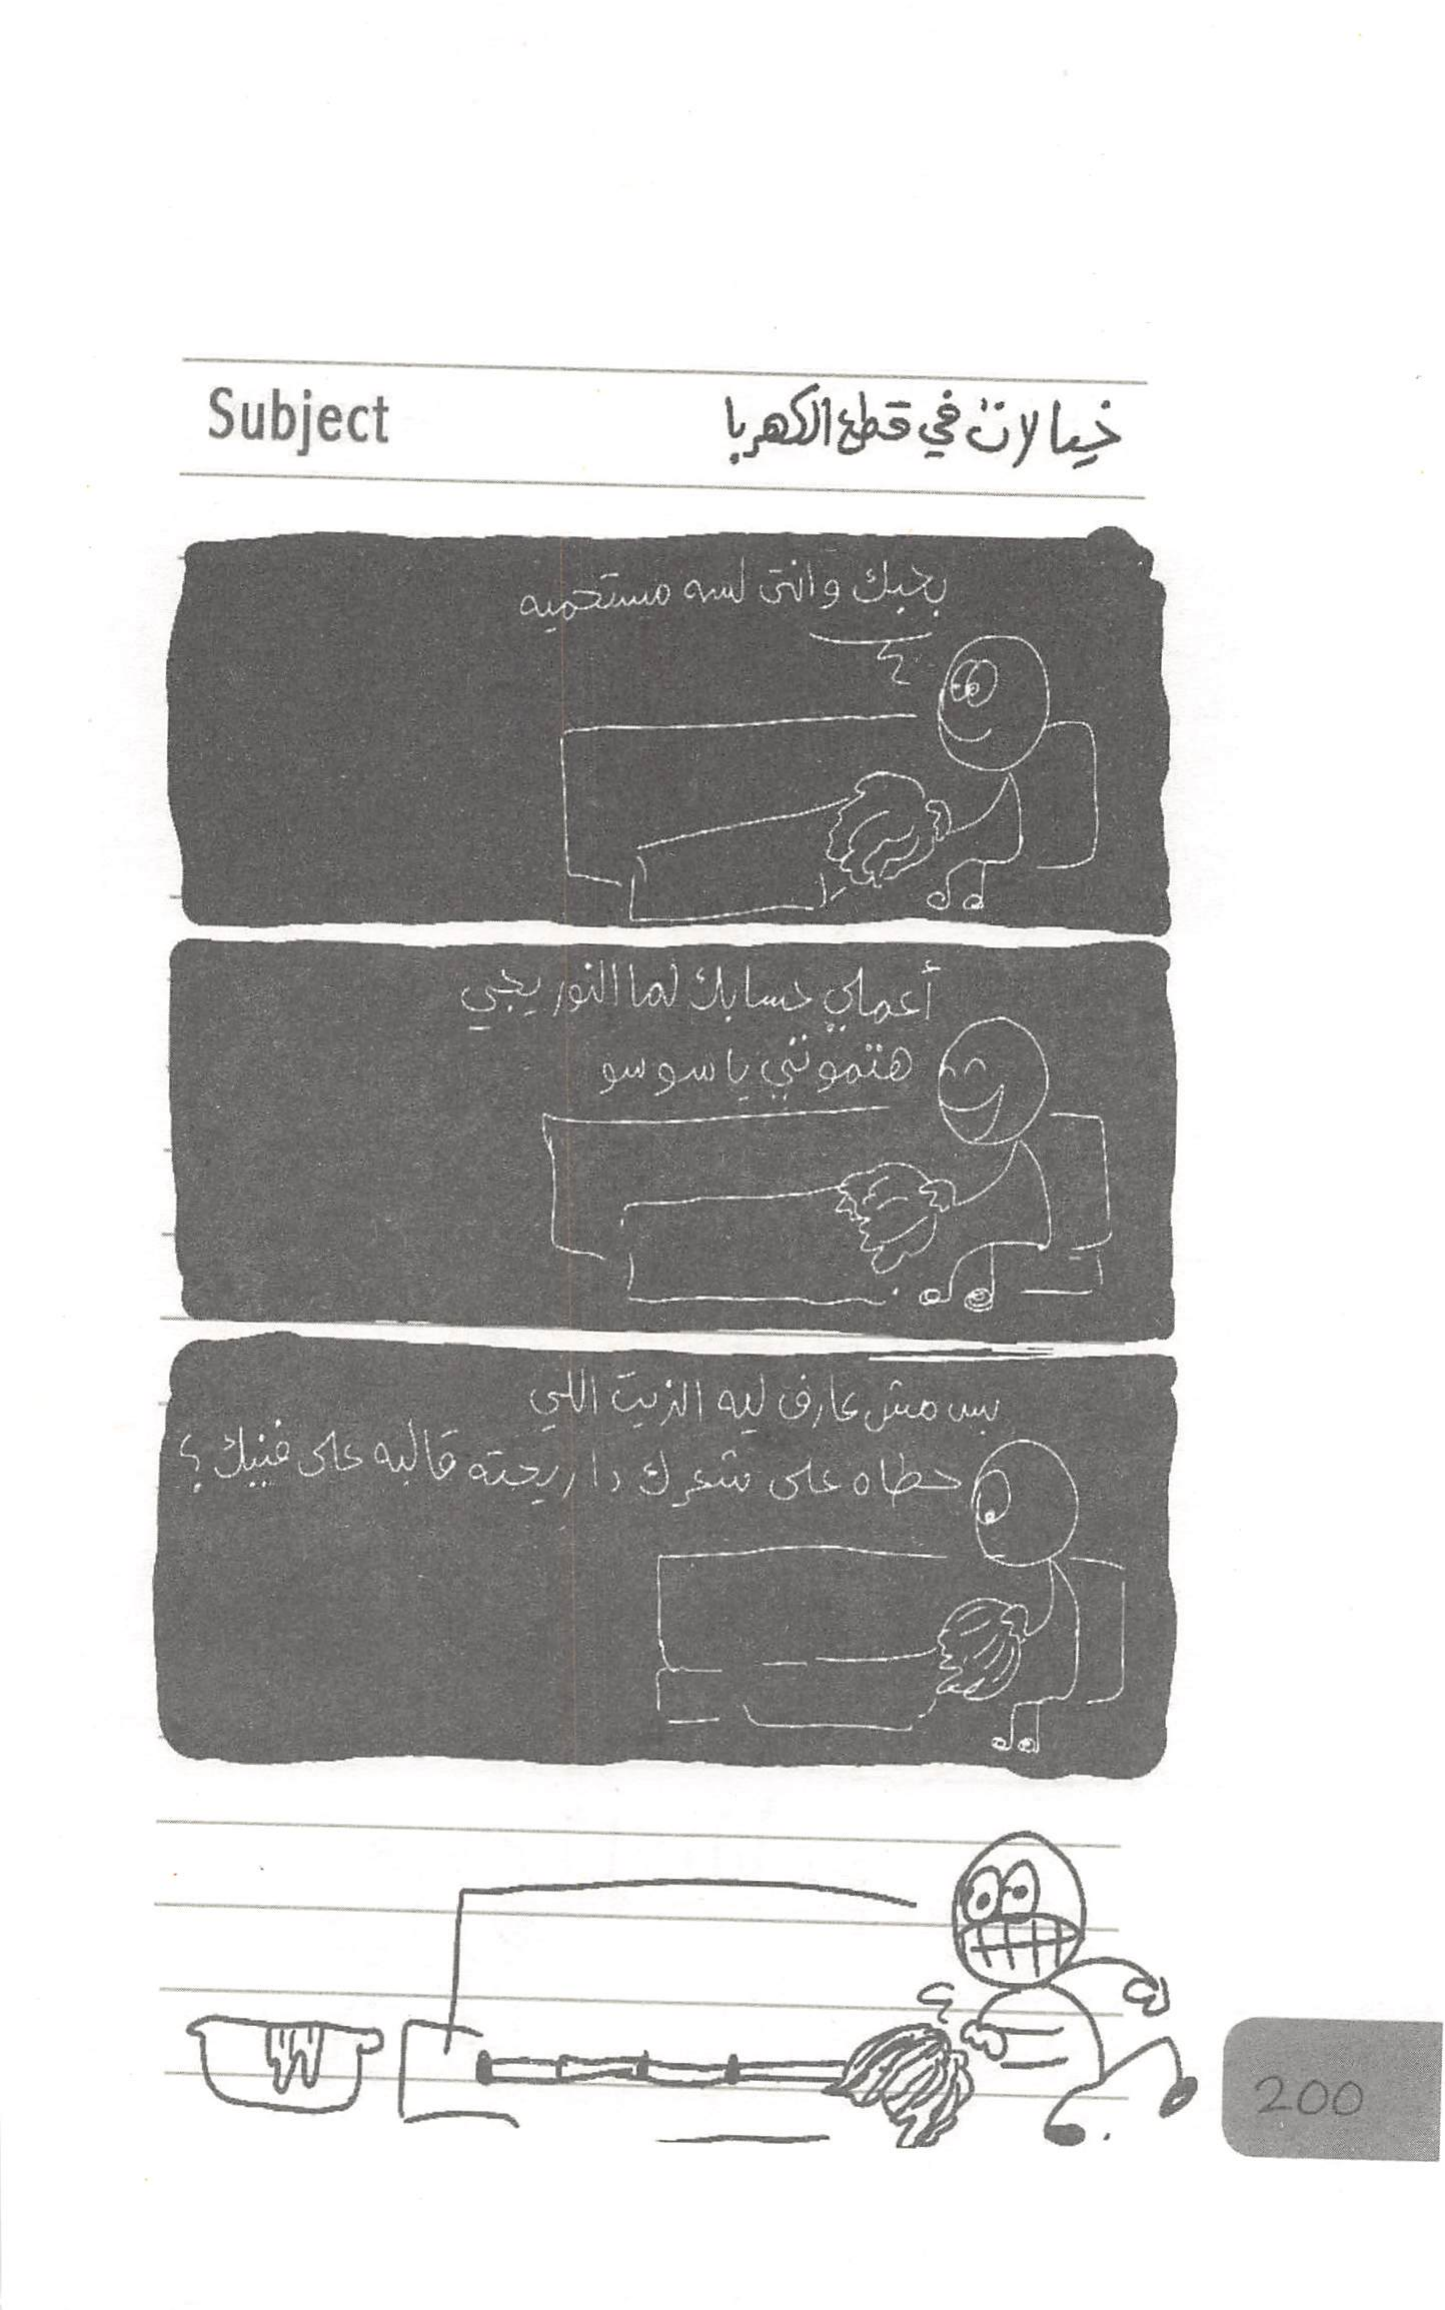 Subject
خيالات في قطع الكهربا
بحبك وانتى لسه مستحميه
أعملي حسابك لما النور يجي
هتموتني يا سوسو
بس مش عارف ليه الزيت اللي
حطاه على شعرك دا ريحته قالبه على فنيك ؟
200